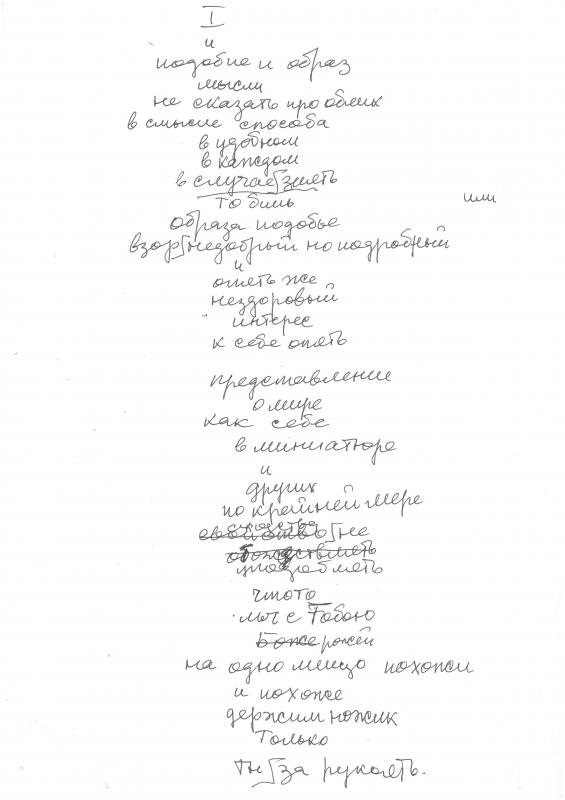 I
и
подобие и образ
мысли
не сказать про облик
в смысле способа
в удобном
в каждом
в случае зреть
то бишь
или
образа подобье
взор недобрый но подробный
и
опять же
нездоровый
интерес
к себе опять
представление
о мире
как себе
в миниатюре
и
других
по крайней мере
свойство не
обожествлять
уподоблять
что то
мы с Тобою
Боже рожей
на одно лицо похожи
и похоже
держим ножик
только
ты за рукоять.